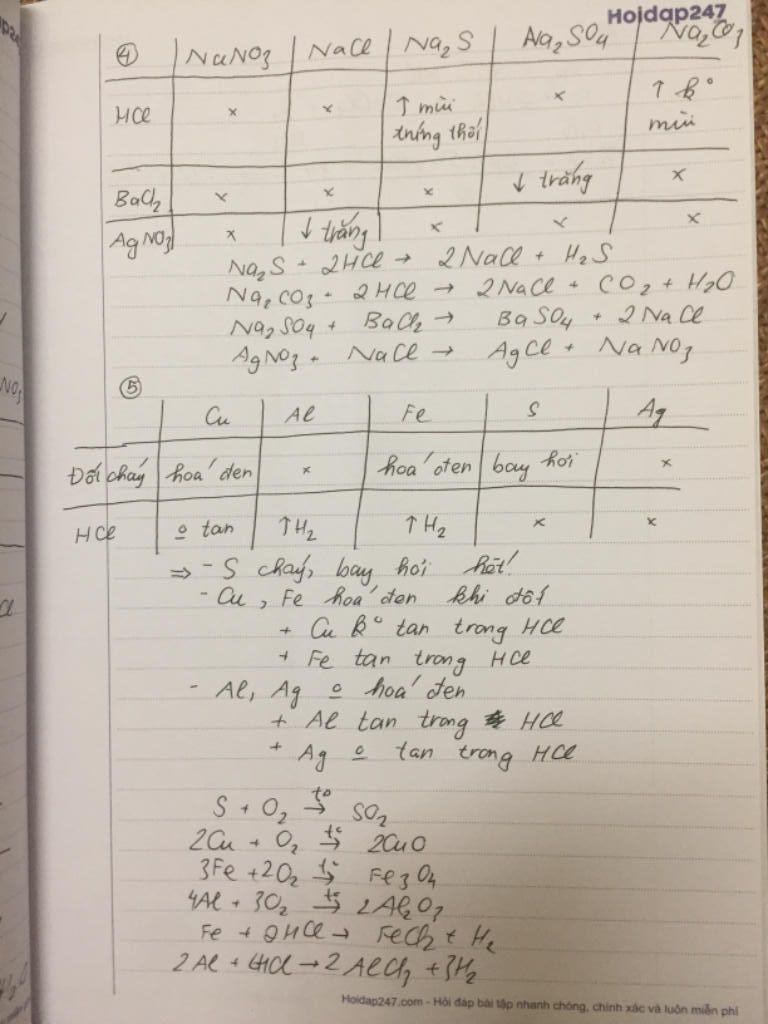 Hoidap247
④ NaNO3 NaCl Na2S Na2SO4 Na2CO3
HCl x x ↑ mùi trứng thối x ↑ ko mùi
BaCl2 x x x ↓ trắng x
AgNO3 x ↓ trắng x x x
Na2S + 2HCl → 2NaCl + H2S
Na2CO3 + 2HCl → 2NaCl + CO2 + H2O
Na2SO4 + BaCl2 → BaSO4 + 2NaCl
AgNO3 + NaCl → AgCl + NaNO3
⑤
Cu Al Fe S Ag
Đốt cháy hoá đen x hoá đen bay hơi x
HCl o tan ↑H2 ↑H2 x x
⇒ - S cháy, bay hơi hết!
- Cu, Fe hoá đen khi đốt
+ Cu ko tan trong HCl
+ Fe tan trong HCl
- Al, Ag o hoá đen
+ Al tan trong HCl
+ Ag o tan trong HCl
S + O2 →to SO2
2Cu + O2 →to 2CuO
3Fe + 2O2 →to Fe3O4
4Al + 3O2 →to 2Al2O3
Fe + 2HCl → FeCl2 + H2
2Al + 6HCl → 2AlCl3 + 3H2
Hoidap247.com - Hỏi đáp bài tập nhanh chóng, chính xác và luôn miễn phí